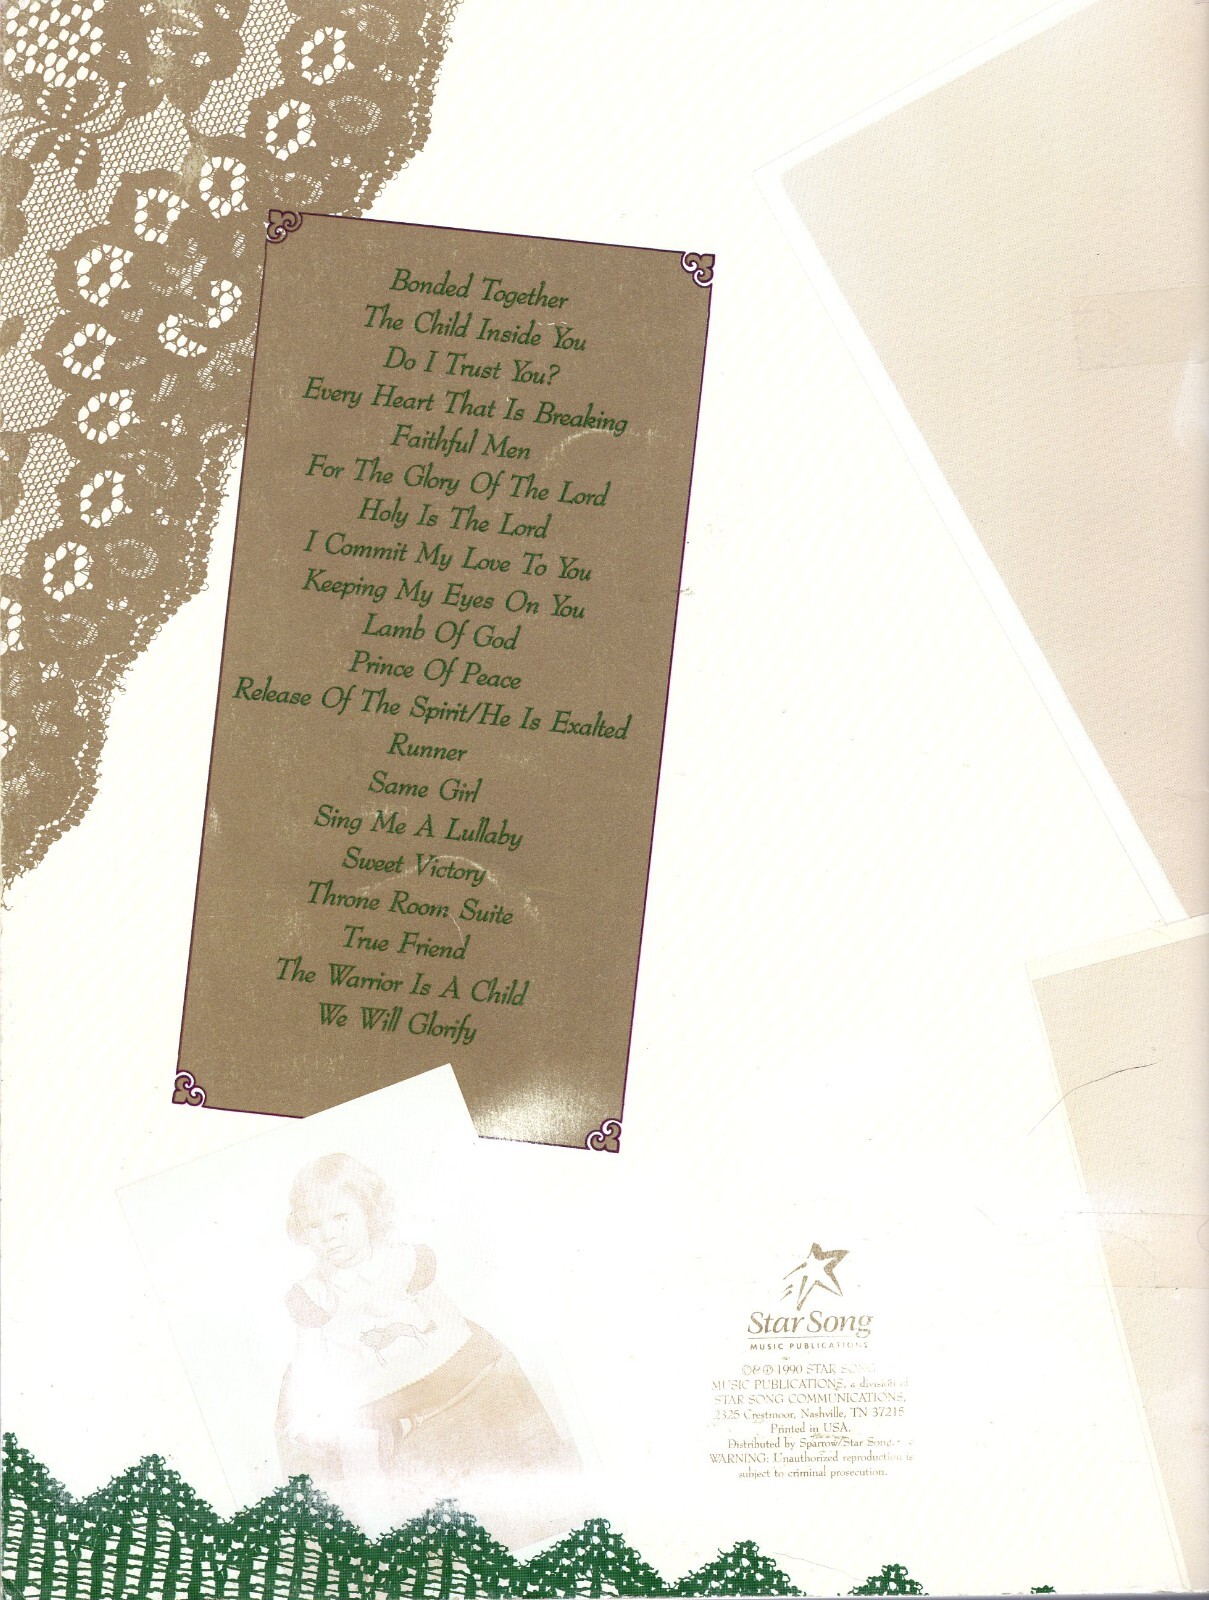 Bonded Together
The Child Inside You
Do I Trust You?
Every Heart That Is Breaking
Faithful Men
For The Glory Of The Lord
Holy Is The Lord
I Commit My Love To You
Keeping My Eyes On You
Lamb Of God
Prince Of Peace
Release Of The Spirit/He Is Exalted
Runner
Same Girl
Sing Me A Lullaby
Sweet Victory
Throne Room Suite
True Friend
The Warrior Is A Child
We Will Glorify
Star Song
MUSIC PUBLICATIONS
©&℗ 1990 STAR SONG
MUSIC PUBLICATIONS, a division of
STAR SONG COMMUNICATIONS,
2325 Crestmoor, Nashville, TN 37215
Printed in USA.
Distributed by Sparrow/Star Song
WARNING: Unauthorized reproduction is
subject to criminal prosecution.